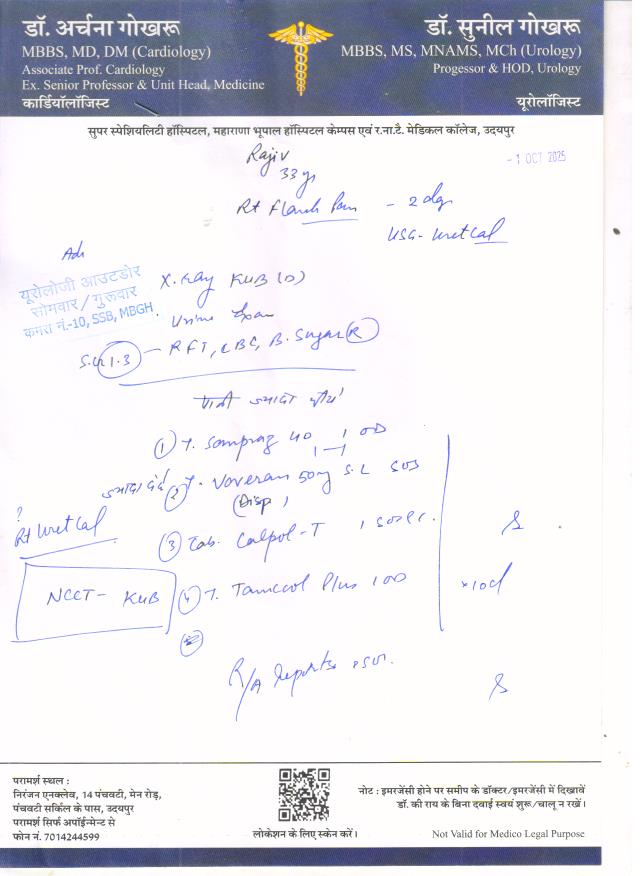 डॉ. अर्चना गोखरू
MBBS, MD, DM (Cardiology)
Associate Prof. Cardiology
Ex. Senior Professor & Unit Head, Medicine
कार्डियॉलॉजिस्ट
डॉ. सुनील गोखरू
MBBS, MS, MNAMS, MCh (Urology)
Progessor & HOD, Urology
यूरोलॉजिस्ट
सुपर स्पेशियलिटी हॉस्पिटल, महाराणा भूपाल हॉस्पिटल केम्पस एवं र.ना.टै. मेडिकल कॉलेज, उदयपुर
Rajiv
33 yr
- 1 OCT 2025
Rt Flank Pain - 2 day
USG - Uret Cal
Adv
यूरोलॉजी आउटडोर
सोमवार / गुरूवार
कमरा नं.-10, SSB, MBGH.
X-Ray KUB (D)
Urine Exam
S.Cr 1.3 - RFT, CBC, B. Sugar (R)
पानी ज्यादा पीये
① T. Sompraz 40 1 OD
ज्यादा दर्द ② T. Voveran 50mg S.L SOS
(Disp)
? Rt Uret Cal
③ Tab. Calpol-T 1 SOS
NCCT - KUB
④ T. Tamccol Plus 1 OD
x 10d
R/A Reports
परामर्श स्थल :
निरंजन एनक्लेव, 14 पंचवटी, मेन रोड़,
पंचवटी सर्किल के पास, उदयपुर
परामर्श सिर्फ अपॉईन्मेन्ट से
फोन नं. 7014244599
लोकेशन के लिए स्केन करें।
नोट : इमरजेंसी होने पर समीप के डॉक्टर/इमरजेंसी में दिखावें
डॉ. की राय के बिना दवाई स्वयं शुरू/चालू न रखें।
Not Valid for Medico Legal Purpose